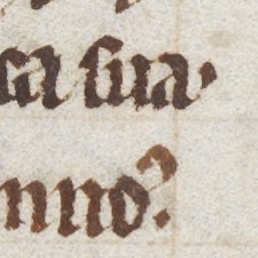 ca sua.
nno?